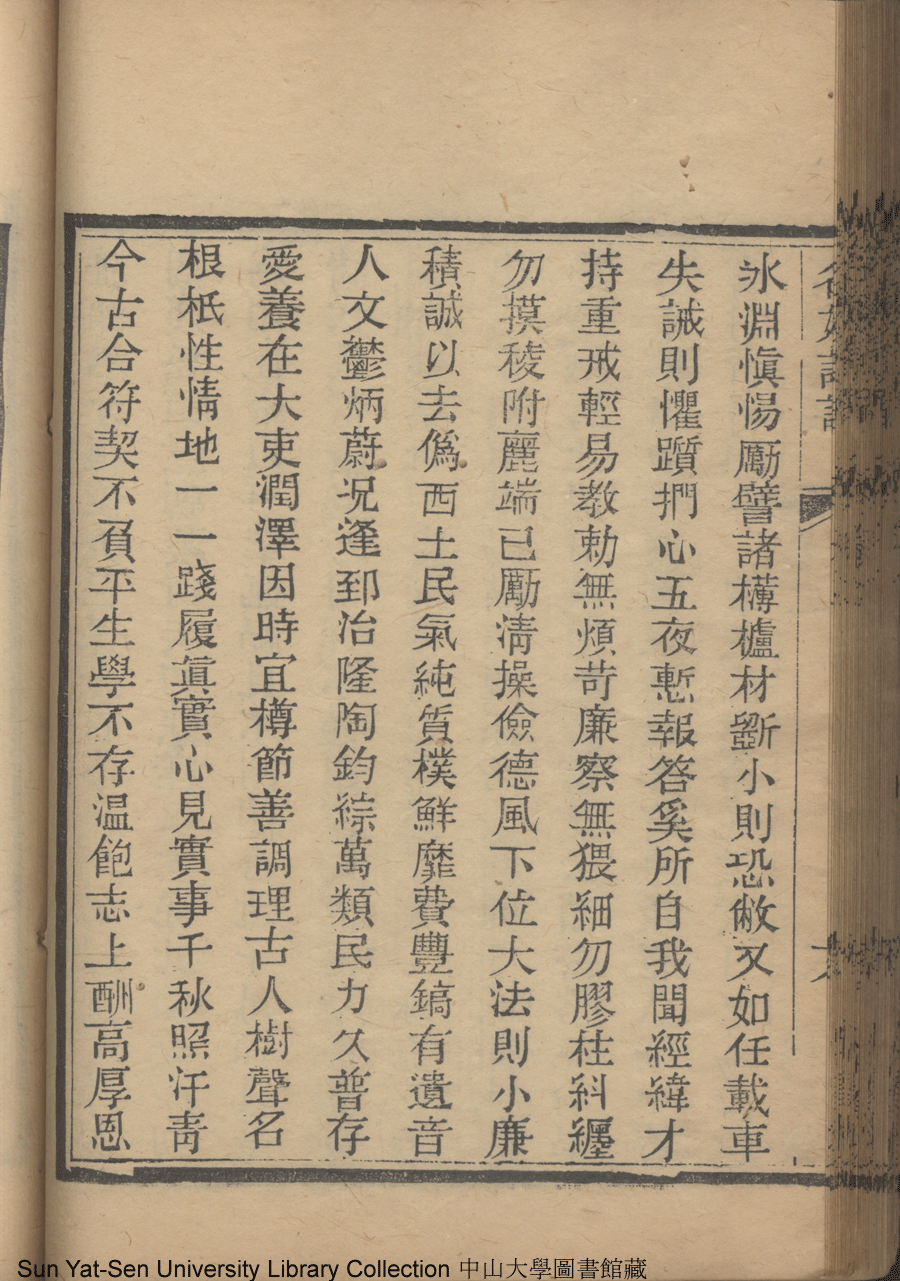 氷淵愼惕厲譬諸欂櫨材斵小則恐敝又如任載車
失誡則懼躓捫心五夜慙報答奚所自我聞經緯才
持重戒輕易教勅無煩苛廉察無猥細勿膠柱糾纆
勿摸稜附麗端已厲淸操儉德風下位大法則小廉
積誠以去僞西土民氣純質樸鮮靡費豐鎬有遺音
人文鬱炳蔚况逢郅治隆陶鈞綜萬類民力久普存
愛養在大吏潤澤因時宜樽節善調理古人樹聲名
根柢性情地一一踐履眞實心見實事千秋照汗靑
今古合符契不負平生學不存温飽志上酬高厚恩
Sun Yat-Sen University Library Collection 中山大學圖書館藏